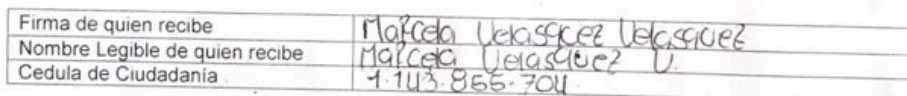 Firma de quien recibe Marcela Velasquez Velasquez
Nombre Legible de quien recibe Marcela Velasquez V.
Cedula de Ciudadanía 1.143.855.704